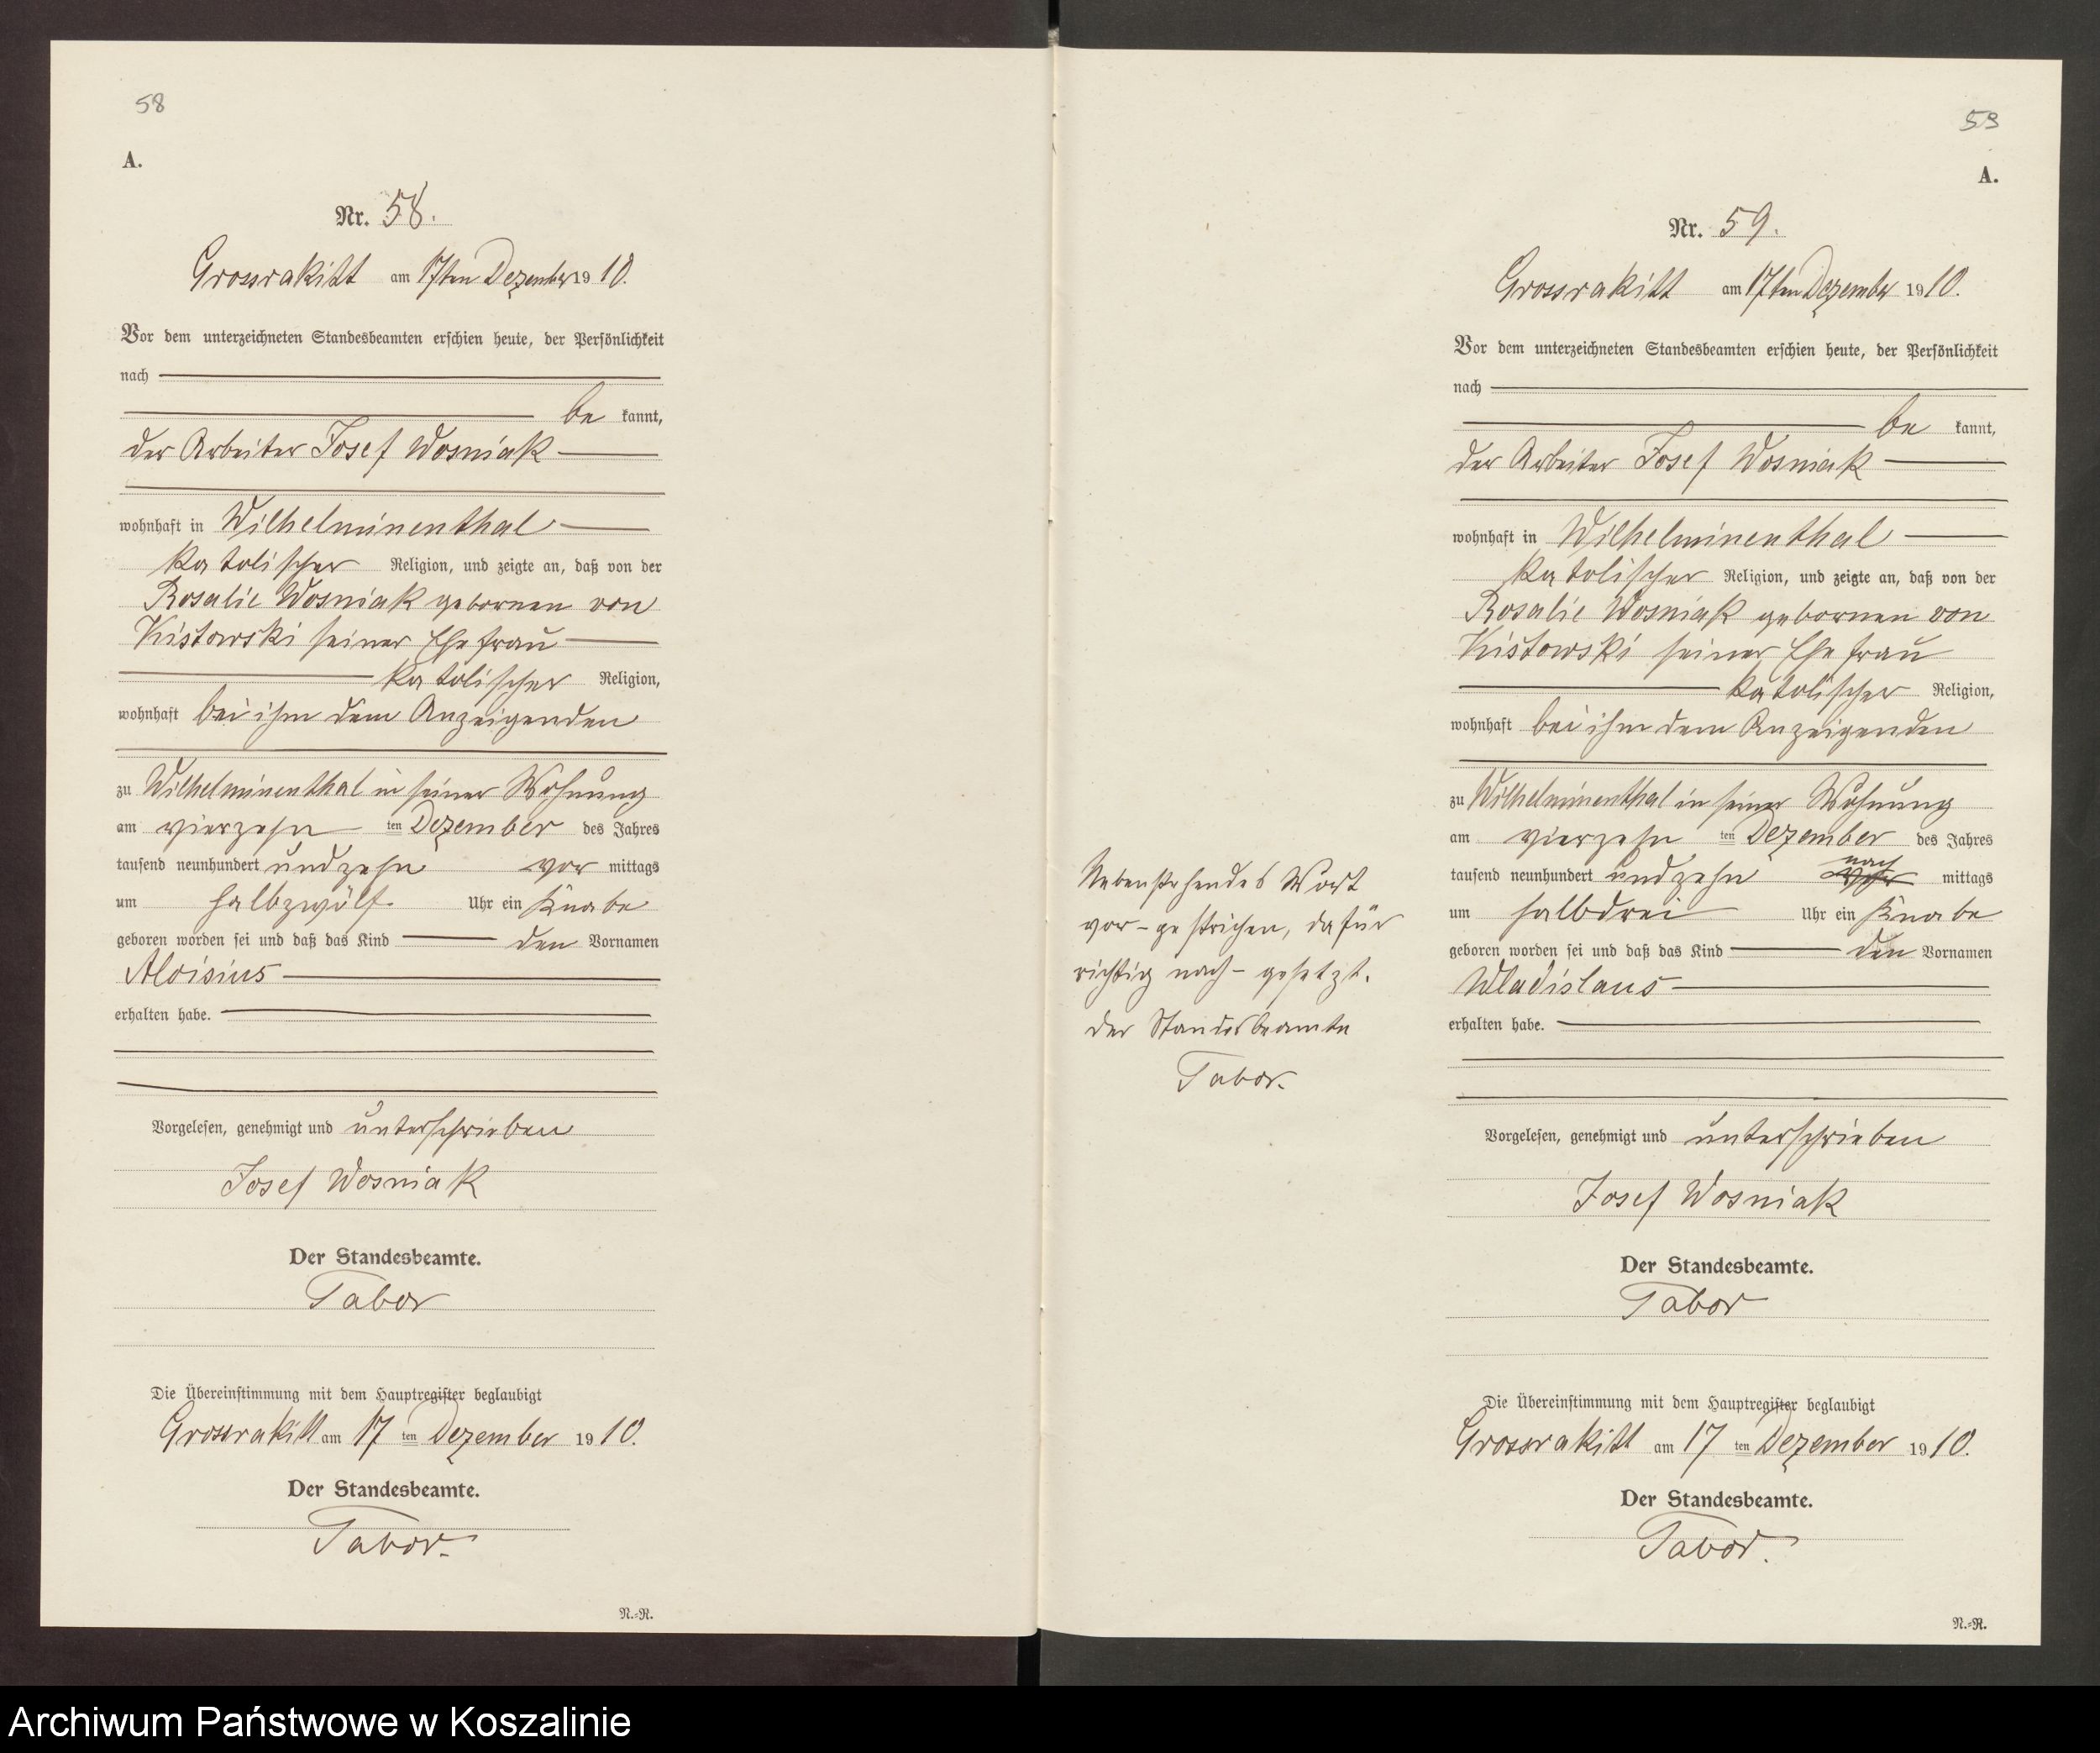 58
A.
Nr. 58.
Grossrakitt am 17ten Dezember 1910.
Vor dem unterzeichneten Standesbeamten erschien heute, der Persönlichkeit
nach
be kannt,
der Arbeiter Josef Wosniak
wohnhaft in Wilhelminenthal
katolischer Religion, und zeigte an, daß von der
Rosalie Wosniak gebornen von
Kistowski seiner Ehefrau
katolischer Religion,
wohnhaft bei ihm dem Anzeigenden
zu Wilhelminenthal in seiner Wohnung
am vierzehn ten Dezember des Jahres
tausend neunhundert und zehn vor mittags
um halbzwölf Uhr ein Knabe
geboren worden sei und daß das Kind den Vornamen
Aloisius
erhalten habe.
Vorgelesen, genehmigt und unterschrieben
Josef Wosniak
Der Standesbeamte.
Tabor
Die Übereinstimmung mit dem Hauptregister beglaubigt
Grossrakitt am 17 ten Dezember 1910.
Der Standesbeamte.
Tabor.
N.-R.
59
A.
Nr. 59.
Grossrakitt am 17ten Dezember 1910.
Vor dem unterzeichneten Standesbeamten erschien heute, der Persönlichkeit
nach
be kannt,
der Arbeiter Josef Wosniak
wohnhaft in Wilhelminenthal
katolischer Religion, und zeigte an, daß von der
Rosalie Wosniak gebornen von
Kistowski seiner Ehefrau
katolischer Religion,
wohnhaft bei ihm dem Anzeigenden
zu Wilhelminenthal in seiner Wohnung
am vierzehn ten Dezember des Jahres
nach
tausend neunhundert und zehn vor mittags
um halbdrei Uhr ein Knabe
geboren worden sei und daß das Kind den Vornamen
Wladislaus
erhalten habe.
Nebenstehendes Wort
vor- gestrichen, dafür
richtig nach- gesetzt.
der Standesbeamte
Tabor.
Vorgelesen, genehmigt und unterschrieben
Josef Wosniak
Der Standesbeamte.
Tabor
Die Übereinstimmung mit dem Hauptregister beglaubigt
Grossrakitt am 17 ten Dezember 1910.
Der Standesbeamte.
Tabor.
N.-R.
Archiwum Państwowe w Koszalinie